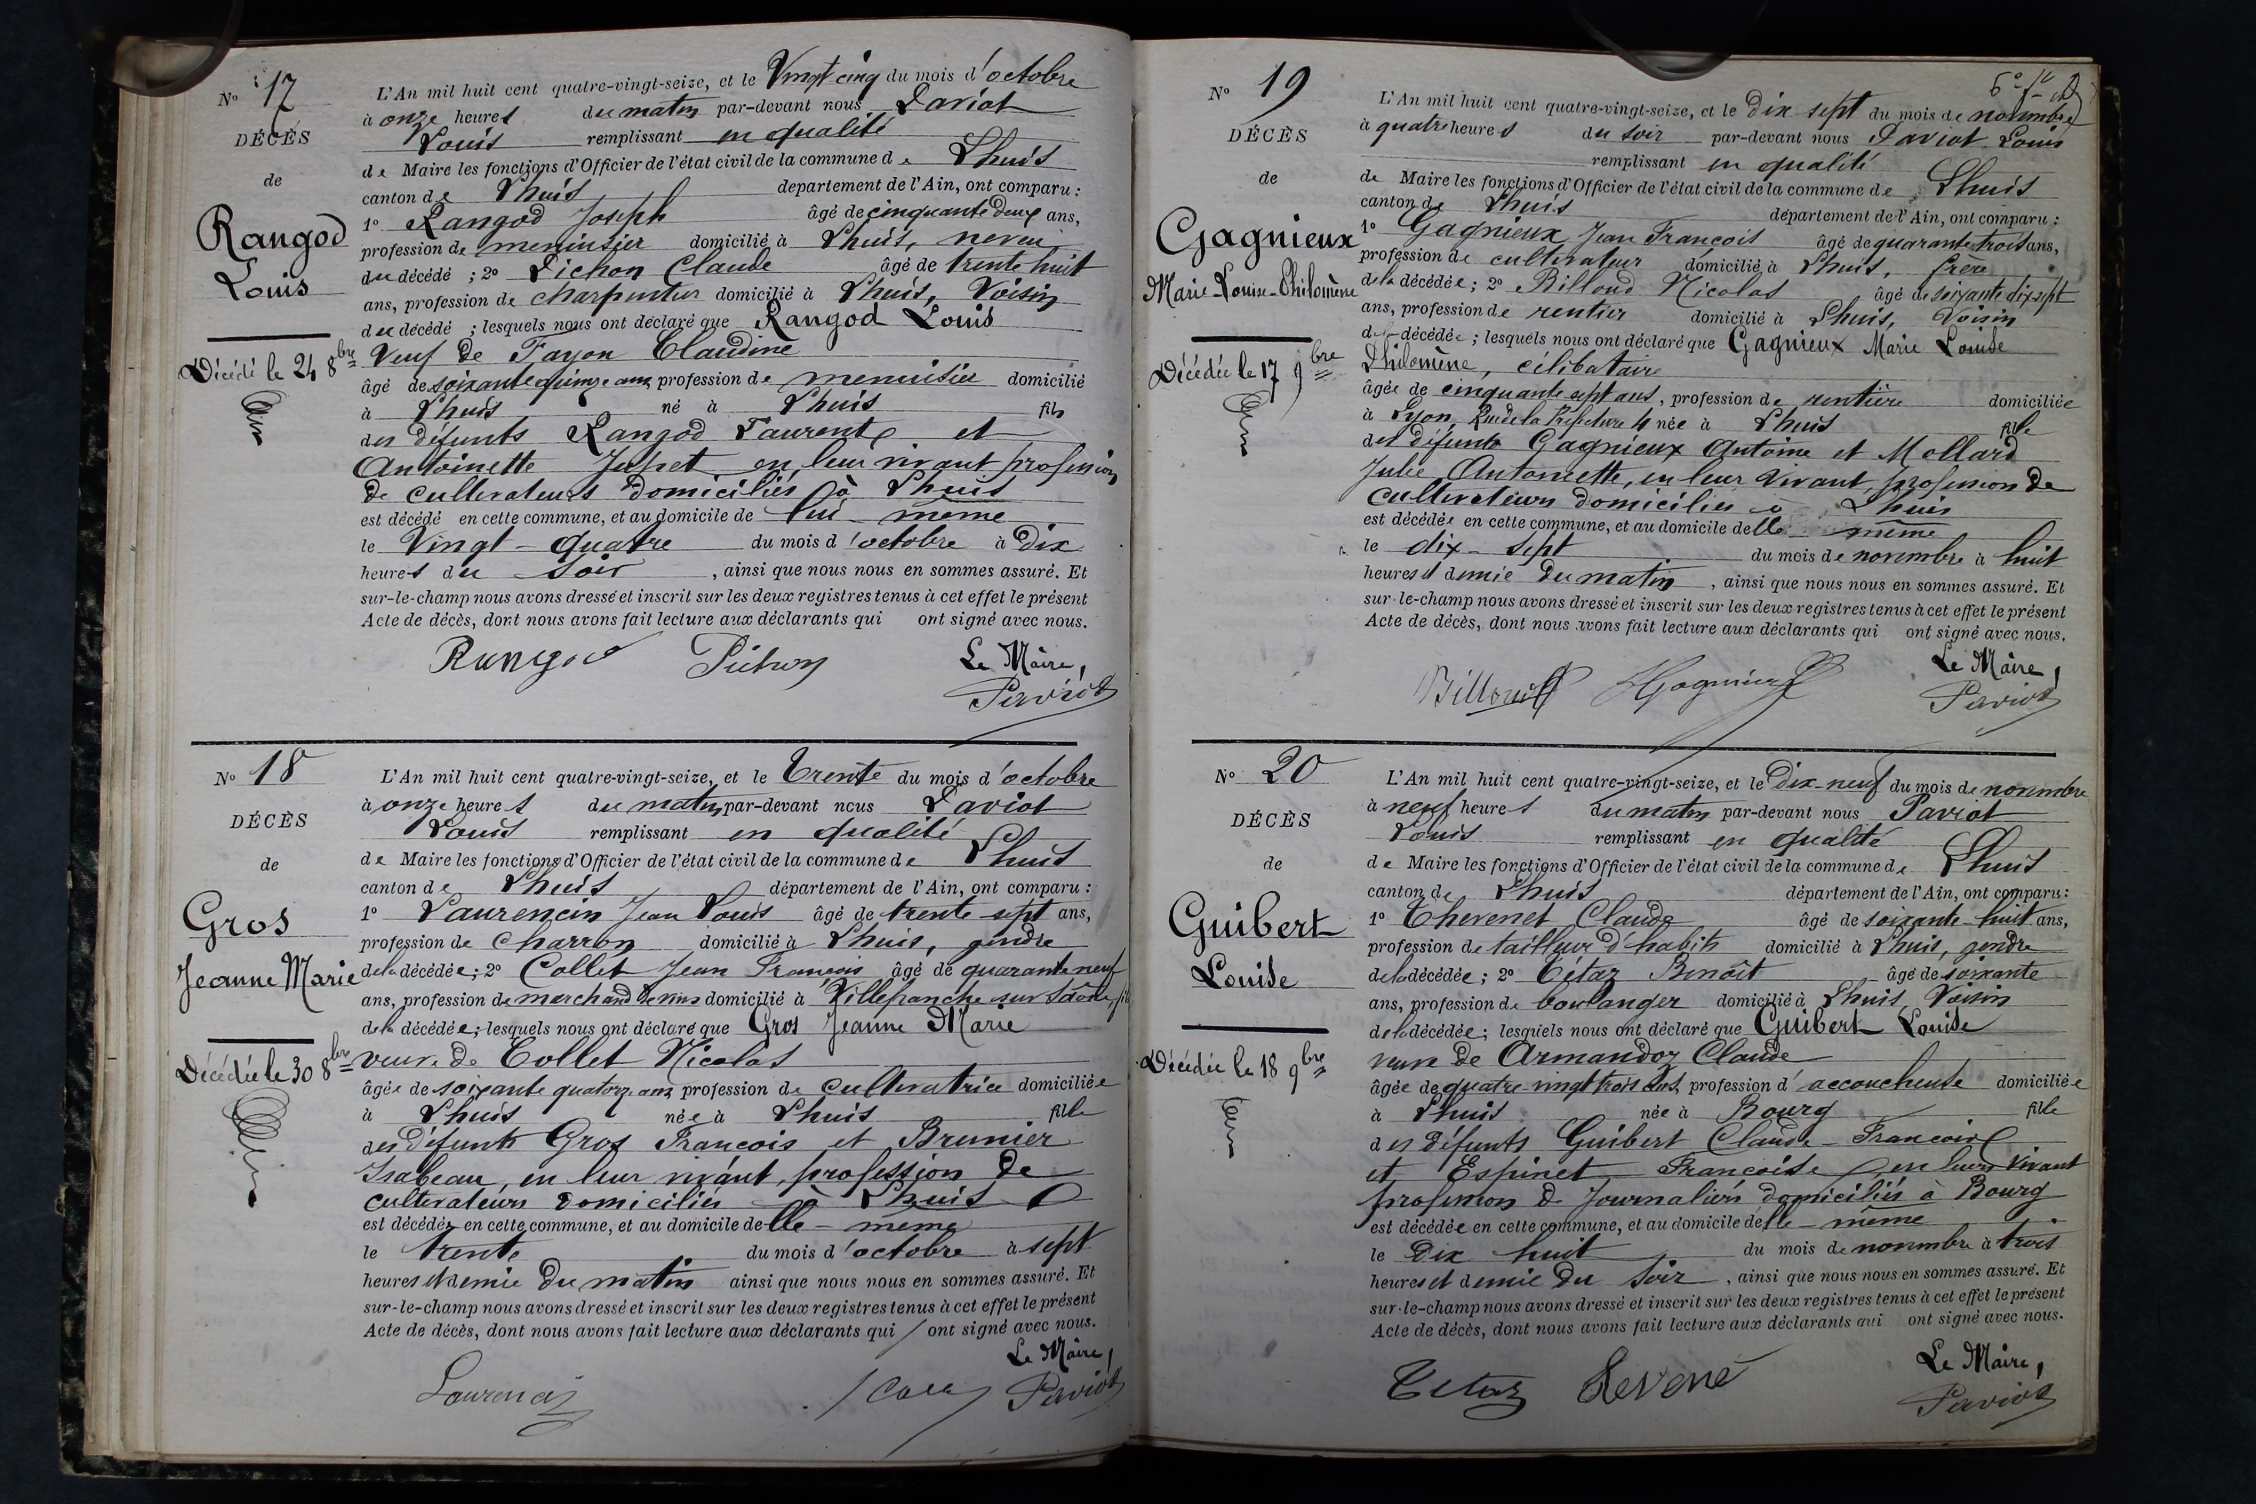 N° 17
DÉCÈS
de
Rangod
Louis
Décédé le 24 8bre
L'An mil huit cent quatre-vingt-seize, et le Vingt cinq du mois d'octobre
à onze heures du matin par-devant nous Paviot
Louis remplissant en qualité
de Maire les fonctions d'Officier de l'état civil de la commune de Lhuis
canton de Lhuis departement de l'Ain, ont comparu :
1° Rangod Joseph âgé de cinquante deux ans,
profession de menuisier domicilié à Lhuis, neveu
du décédé ; 2° Pichon Claude âgé de trente huit
ans, profession de charpentier domicilié à Lhuis, Voisin
du décédé ; lesquels nous ont déclaré que Rangod Louis
Veuf de Fayon Claudine
âgé de soixante quinze ans, profession de menuisier domicilié
à Lhuis né à Lhuis fils
des défunts Rangod Laurent et
Antoinette Juhet en leur vivant profession
de cultivateurs domiciliés à Lhuis
est décédé en cette commune, et au domicile de lui-même
le Vingt-quatre du mois d'octobre à Dix
heures du soir, ainsi que nous nous en sommes assuré. Et
sur-le-champ nous avons dressé et inscrit sur les deux registres tenus à cet effet le présent
Acte de décès, dont nous avons fait lecture aux déclarants qui ont signé avec nous.
Le Maire,
Rangod Pichon Paviot
N° 18
DÉCÈS
de
Gros
Jeanne Marie
Décédée le 30 8bre
L'An mil huit cent quatre-vingt-seize, et le Trente du mois d'octobre
à onze heures du matin par-devant nous Paviot
Louis remplissant en qualité
de Maire les fonctions d'Officier de l'état civil de la commune de Lhuis
canton de Lhuis département de l'Ain, ont comparu :
1° Laurencin Jean Louis âgé de trente sept ans,
profession de charron domicilié à Lhuis, gendre
de la décédée ; 2° Collet Jean François âgé de quarante neuf
ans, profession de marchand de vins domicilié à Villefranche sur Saône fils
de la décédée ; lesquels nous ont déclaré que Gros Jeanne Marie
veuve de Collet Nicolas
âgée de soixante quatorze ans, profession de cultivatrice domiciliée
à Lhuis née à Lhuis fille
des défunts Gros François et Brunier
Isabeau, en leur vivant, profession de
cultivateurs domiciliés à Lhuis
est décédée en cette commune, et au domicile d'elle-même
le trente du mois d'octobre à sept
heures et demie du matin ainsi que nous nous en sommes assuré. Et
sur-le-champ nous avons dressé et inscrit sur les deux registres tenus à cet effet le présent
Acte de décès, dont nous avons fait lecture aux déclarants qui ont signé avec nous.
Le Maire,
Laurencin Paviot
N° 19
DÉCÈS
de
Gagnieux
Marie-Louise-Philomène
Décédée le 17 9bre
L'An mil huit cent quatre-vingt-seize, et le Dix sept du mois de novembre
à quatre heures du soir par-devant nous Paviot Louis
remplissant en qualité
de Maire les fonctions d'Officier de l'état civil de la commune de Lhuis
canton de Lhuis département de l'Ain, ont comparu :
1° Gagnieux Jean François âgé de quarante trois ans,
profession de cultivateur domicilié à Lhuis, frère
de la décédée ; 2° Billoud Nicolas âgé de soixante dix sept
ans, profession de rentier domicilié à Lhuis, Voisin
de la décédée ; lesquels nous ont déclaré que Gagnieux Marie Louise
Philomène, célibataire
âgée de cinquante sept ans, profession de rentière domiciliée
à Lyon, Rue de la Préfecture 4 née à Lhuis fille
des défunts Gagnieux Antoine et Mollard
Julie Antoinette, en leur vivant, profession de
cultivateurs domiciliés à Lhuis
est décédée en cette commune, et au domicile d'elle même
le dix-sept du mois de novembre à huit
heures et demie du matin, ainsi que nous nous en sommes assuré. Et
sur-le-champ nous avons dressé et inscrit sur les deux registres tenus à cet effet le présent
Acte de décès, dont nous avons fait lecture aux déclarants qui ont signé avec nous.
Le Maire,
Billoud Gagnieux Paviot
N° 20
DÉCÈS
de
Guibert
Louise
Décédée le 18 9bre
L'An mil huit cent quatre-vingt-seize, et le Dix-neuf du mois de novembre
à neuf heures du matin par-devant nous Paviot
Louis remplissant en qualité
de Maire les fonctions d'Officier de l'état civil de la commune de Lhuis
canton de Lhuis département de l'Ain, ont comparu :
1° Thevenet Claude âgé de soixante-huit ans,
profession de tailleur d'habits domicilié à Lhuis, gendre
de la décédée ; 2° Tétaz Benoît âgé de soixante
ans, profession de boulanger domicilié à Lhuis, Voisin
de la décédée ; lesquels nous ont déclaré que Guibert Louise
veuve de Armandoz Claude
âgée de quatre vingt trois ans, profession d'accoucheuse domiciliée
à Lhuis née à Bourg fille
des défunts Guibert Claude-François
et Espinet Françoise, en leurs vivant
profession de Journaliers domiciliés à Bourg
est décédée en cette commune, et au domicile d'elle-même
le Dix huit du mois de novembre à trois
heures et demie du soir, ainsi que nous nous en sommes assuré. Et
sur-le-champ nous avons dressé et inscrit sur les deux registres tenus à cet effet le présent
Acte de décès, dont nous avons fait lecture aux déclarants qui ont signé avec nous.
Le Maire,
Tétaz Paviot